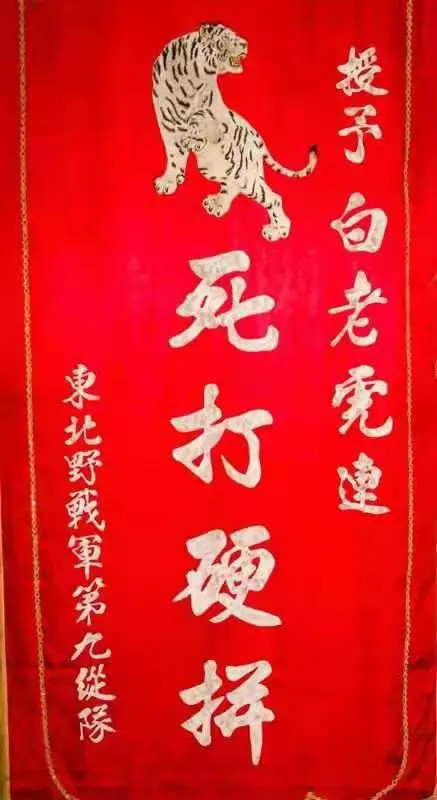 授予白老虎連
死打硬拼
東北野戰軍第九縱隊